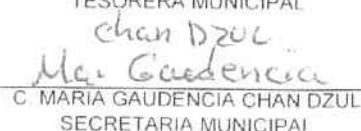 TESORERA MUNICIPAL
Chan Dzul
Ma. Gaudencia
C. MARIA GAUDENCIA CHAN DZUL
SECRETARIA MUNICIPAL